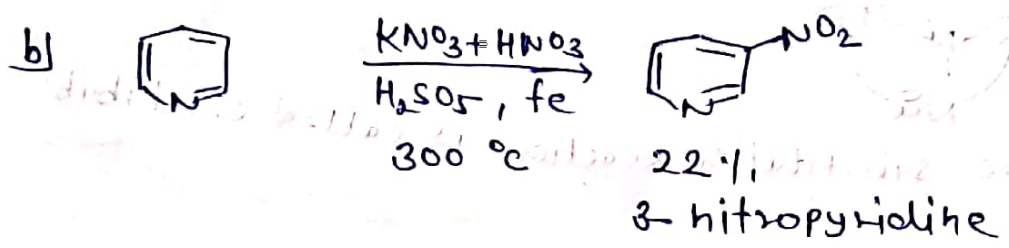 b)
KNO3 + HNO3
H2SO5, fe
300 °C
N
NO2
N
22%
3-nitropyridine